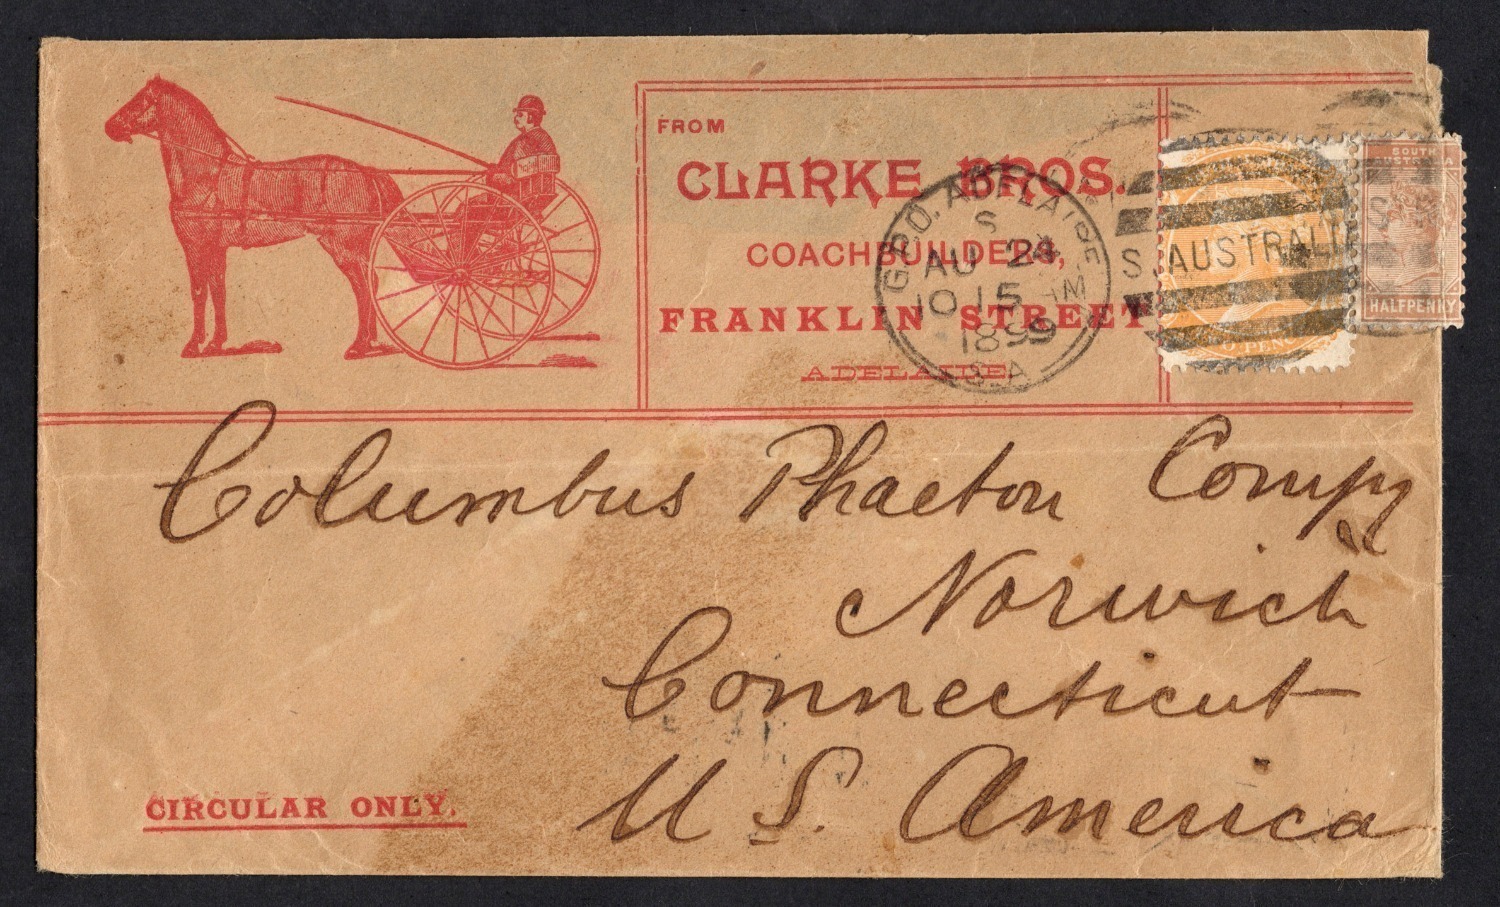 FROM
CLARKE BROS.
COACHBUILDERS,
FRANKLIN STREET
ADELAIDE
G.P.O. ADELAIDE
S
AU 24
10 15 AM
1899
S.A
S. AUSTRALI
SOUTH
AUSTRALIA
HALFPENNY
PENC
Columbus Phaeton Compy
Norwich
Connecticut
U.S. America
CIRCULAR ONLY.